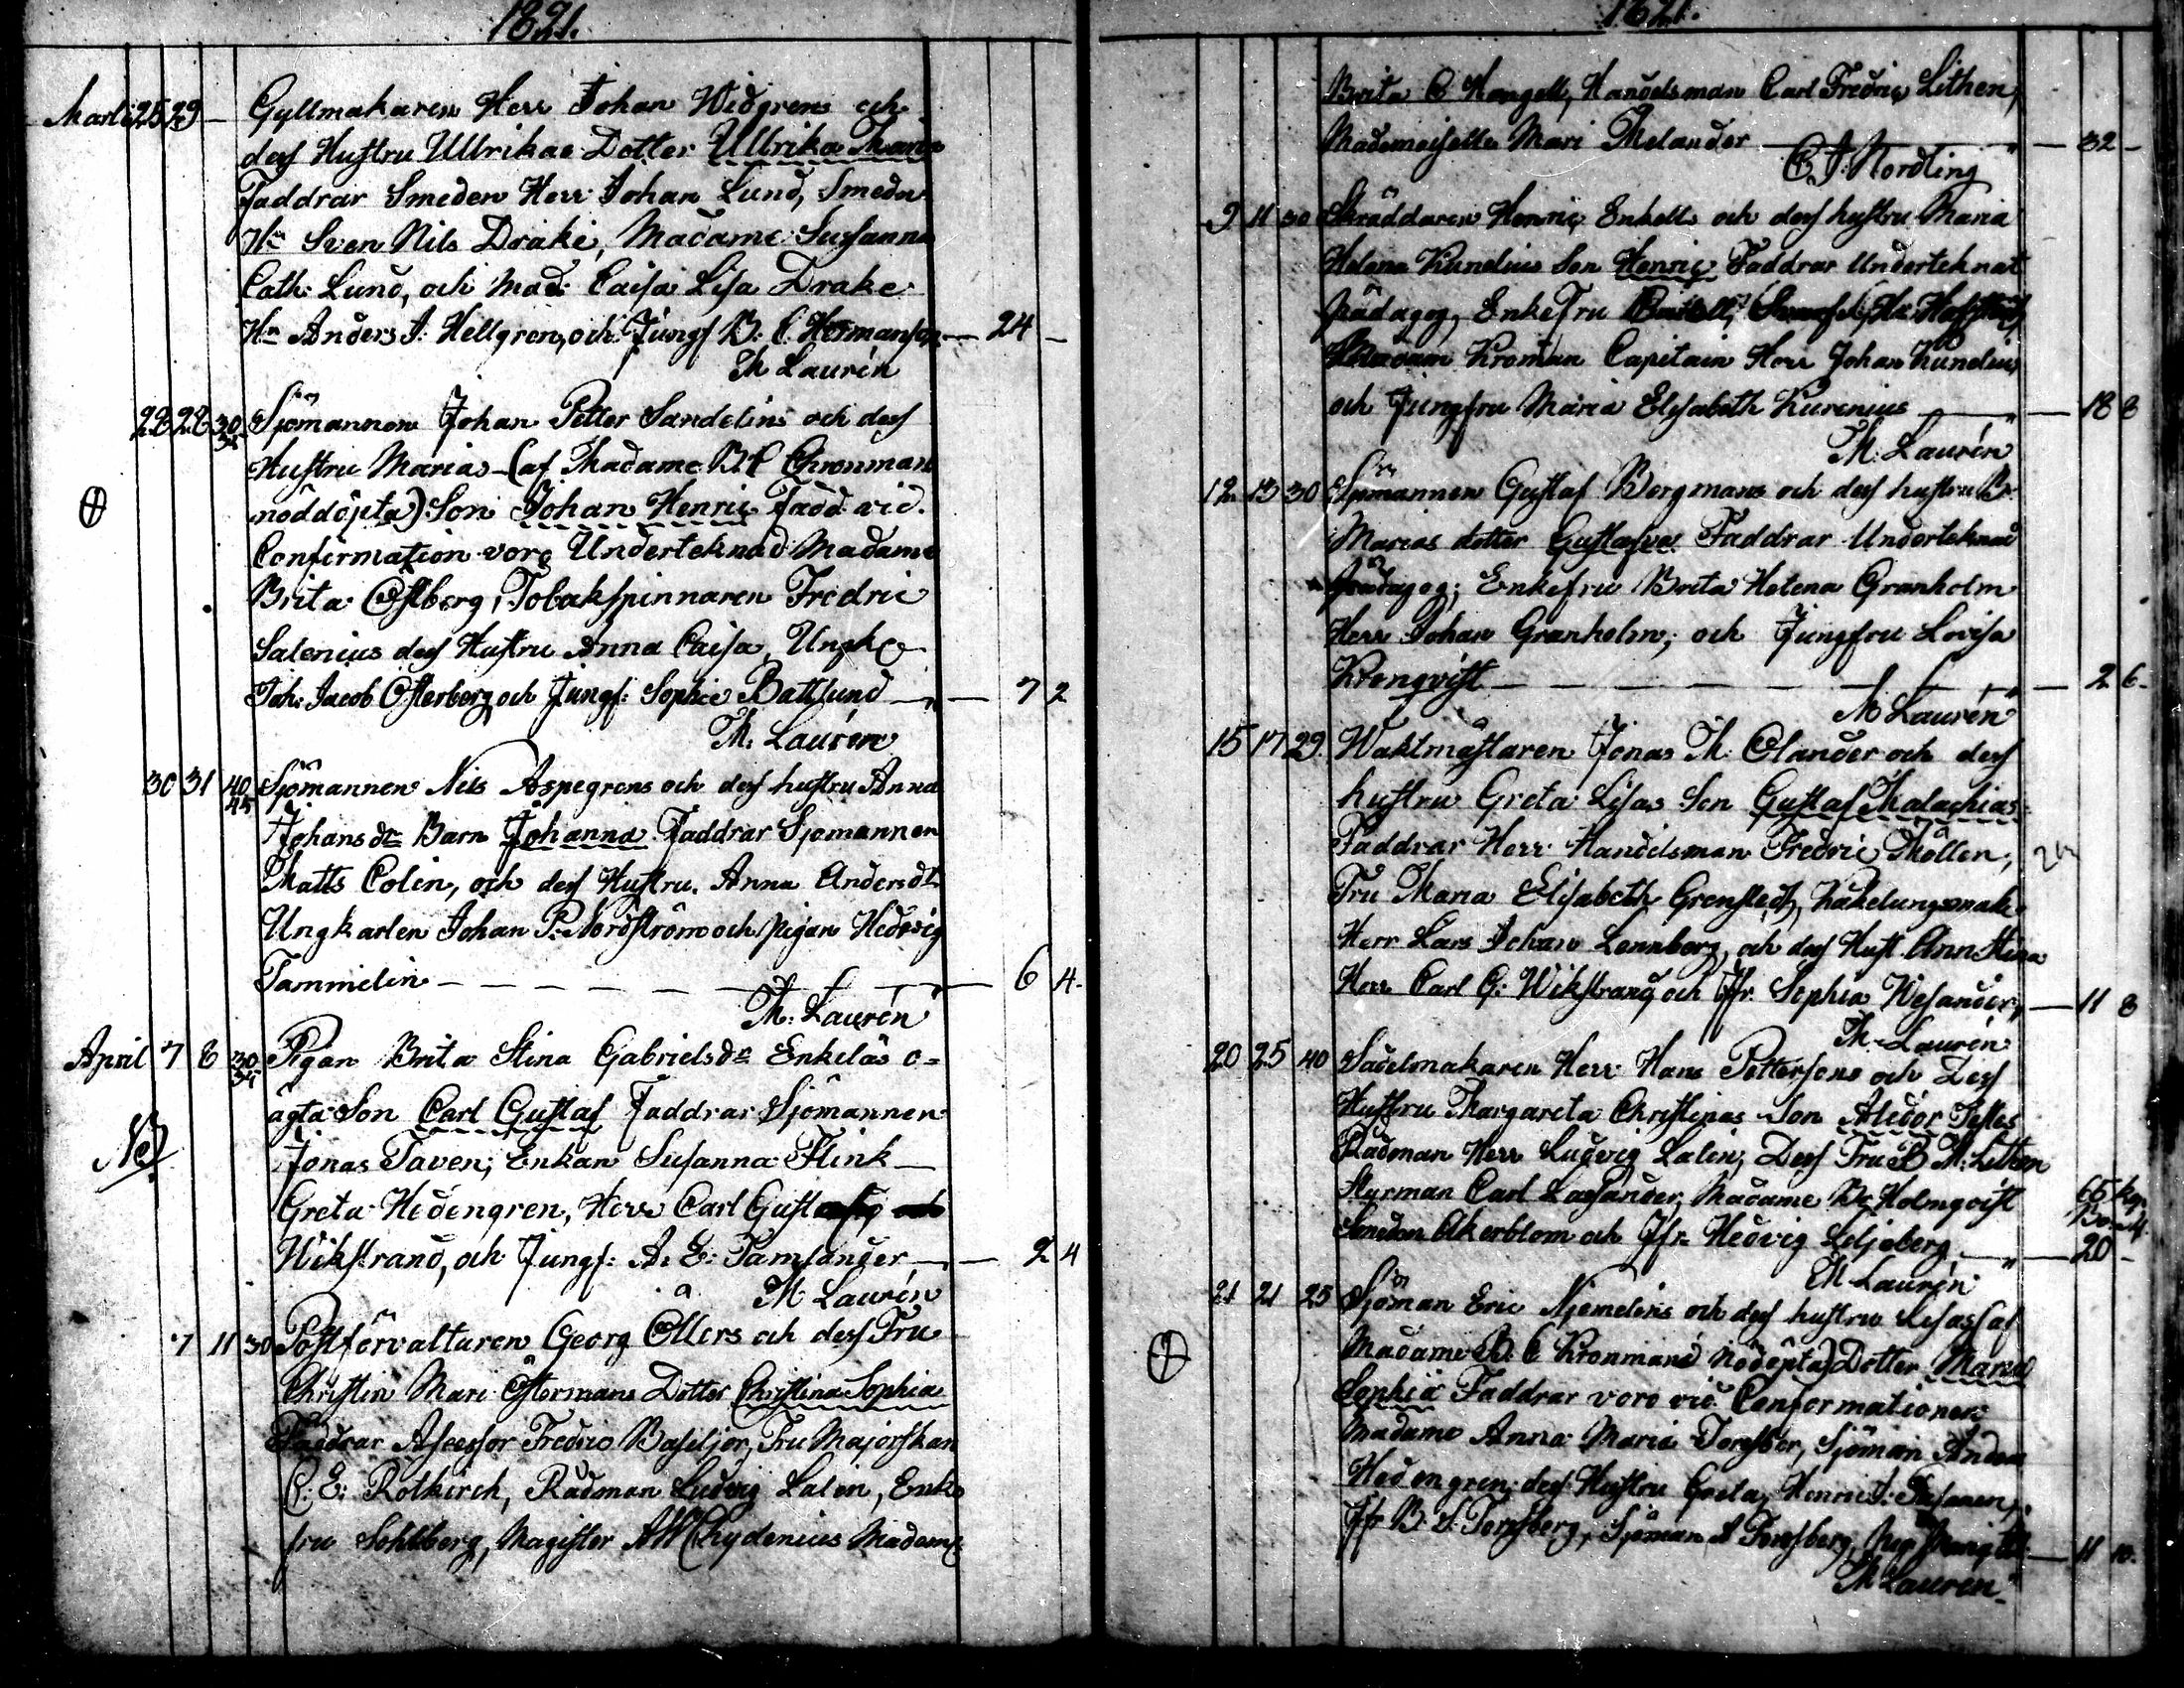 1821.
Martii 25 29 — Gyllmakaren Herr Johan Widgrens och
dess Hustru Ullrikas Dotter Ullrika Maria
Faddrar Smeden Herr Johan Lund, Smeden
Hn Sven Nils Drake, Madame Susanna
Cath: Lund, och Mad: Caisa Lisa Drake
Hn Anders J: Hellgren, och Jungf B: C. Hermanson — 24 —
M Laurén
28 28 30/35 Sjömannen Johan Petter Sandelins och dess
Hustru Marias (af Madame B: C Chronman
nöddöpta) Son Johan Henric Fadd vid
Confirmation voro Underteknad Madame
Brita Östberg, Tobakspinnaren Fredric
Salenius dess Hustru Anna Caisa, Ungk
Joh: Jacob Österberg och Jungf: Sophie Battlund — 7 2
M. Laurén
30 31 40/45 Sjömannen Nils Aspegrens och dess hustru Anna
Johansdr Barn Johanna Faddrar Sjömannen
Matts Colin, och dess Hustru Anna Andersdr
Ungkarlen Johan P. Nordström och pigan Hedvig
Tammelin — 6 4
M. Laurén
April 7 8 30/34 Pigan Brita Stina Gabrielsdr Enkeläs o=
ägta Son Carl Gustaf Faddrar Sjömannen
Jonas Taven, Enkan Susanna Flink
Greta Hedengren, Herr Carl Gust
Wikstrand, och Jungf: A: E: Tamlander — 2 4
M Laurén
7 11 30 Postförvaltaren Georg Ollers och dess Fru
Christin Mari Östermans Dotter Christina Sophia
Faddrar Asessor Fredric Baseljer, Fru Majorskan
C: E: Rotkirch, Rådman Ludvig Lalen, Enke
fru Sohlberg, Magister AW Chydenius Madame
1821.
Brita C Hangell, Handelsman Carl Fredric Lithen,
Mademoiselle Mari Melander — 32 —
C. J. Nordling
9 11 30 Skräddaren Henric Enkells och dess hustru Maria
Helena Kunelius Son Henric Faddrar Underteknat
pädagog, Enkefru
Madam Kroman Capitain Herr Johan Kunelius
och Jungfru Maria Elisabeth Kurenius — 18 8
M. Laurén
12 13 30 Sjömannen Gustaf Bergmans och dess hustru Br.
Marias dotter Gustafva Faddrar Underteknad
Pädagog, Enkefru Brita Helena Granholm
Herr Johan Granholm, och Jungfru Lovisa
Krongvist — 2 6
M Laurén
15 17 29 Waktmästaren Jonas M. Olander och dess
hustru Greta Lisas Son Gustaf Malachias
Faddrar Herr Handelsman Fredric Möllen,
Fru Maria Elisabeth Grenstedt, Kakelungsmak
Herr Lars Johan Lennberg, och dess Hust Ann Stina
Herr Carl G: Wikstrand och Jfr. Sophia Wesander, — 11 8
M. Laurén
20 25 40 Sadelmakaren Herr Hans Pettersons och Dess
Hustru Margareta Christinas Son Alidor
Rådman Herr Ludvig Lalin, Dess Fru B M: Lithen
Styrman Carl Lassander, Madame Br Holmqvist
Smeden Åkerblom och Jfr. Hedvig Leljeberg — 20 —
M Laurén
21 21 25 Sjöman Eric Njemelins och dess hustru Lisas (af
Madame B: C Kronmans Nödöpta) Dotter Maria
Sophia Faddrar voro vid Confirmationen
Madame Anna Maria Forssber, Sjöman Anders
Hedengren, dess Hustru Greta, Henric J:
Jfr B. S. Forssberg, Sjöman A Forssberg, — 11 10
M Laurén